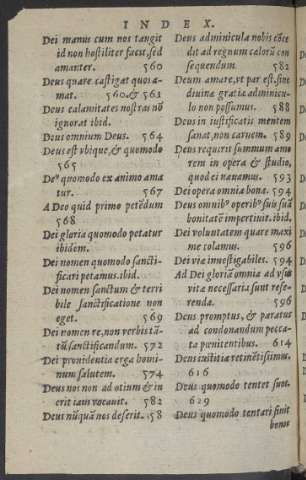 INDEX.
Dei manus cum nos tangit
id non hostiliter facit, sed
amanter. 560
Deus quare castigat quos a-
mat. 560.& 563
Deus calamitates nostras nō
ignorat ibid.
Deus omnium Deus. 564
Deus est vbique, & quomodo
565
De⁹ quomodo ex animo ama
tur. 567
A Deo quid primo petēdum
568
Dei gloria quomodo petatur
ibidem.
Dei nomen quomodo sancti-
ficari petamus. ibid.
Dei nomen sanctum & terri
bile sanctificatione non
eget. 569
Dei nomen re, non verbis tā-
tū sanctificandum. 572
Dei prouidentia erga homi-
num salutem. 574
Deus nos non ad otium & in
erit iam vocauit. 582
Deus nūquā nos deserit. 58
Deus adminicula nobis cōce
dit ad regnum calorū con
sequendum. 582
Deum amare, vt par est, sine
diuina gratia adminicu-
lo non possumus. 588
Deus in iustificatis mentem
sanat, non carnem. 589
Deus requirit summum amo
rem in opera & studio,
quod ei nauamus. 593
Dei opera omnia bona. 594
Deus omnib⁹ operib⁹ suis suā
bonitatē impertiuit. ibid.
Dei voluntatem quare maxi
me colamus. 596
Dei viæ inuestigabiles. 594
Ad Dei gloriā omnia ad vsū
vitæ necessaria sunt refe-
renda. 596
Deus promptus, & paratus
ad condonandum pecca-
ta pœnitentibus. 614
Deus iustitiæ retinētissimus.
616
Deus quomodo tentet suos.
629
Deus quomodo tentari sinit
bonos